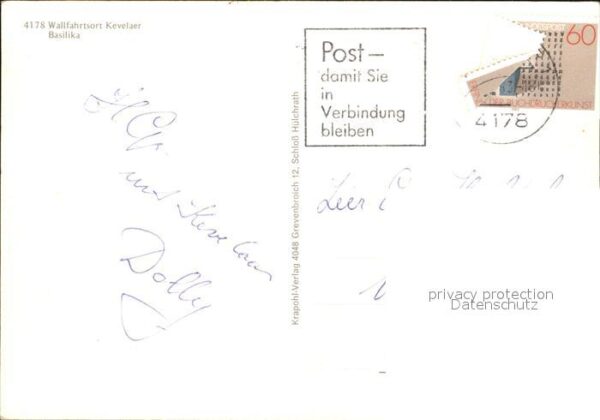 4178 Wallfahrtsort Kevelaer
Basilika
Post –
damit Sie
in
Verbindung
bleiben
60
DER BUCHDRUCKERKUNST
4178
Krapohl-Verlag 4048 Grevenbroich 12, Schloß Hülchrath
aus Kevelaer
Dolly
privacy protection
Datenschutz